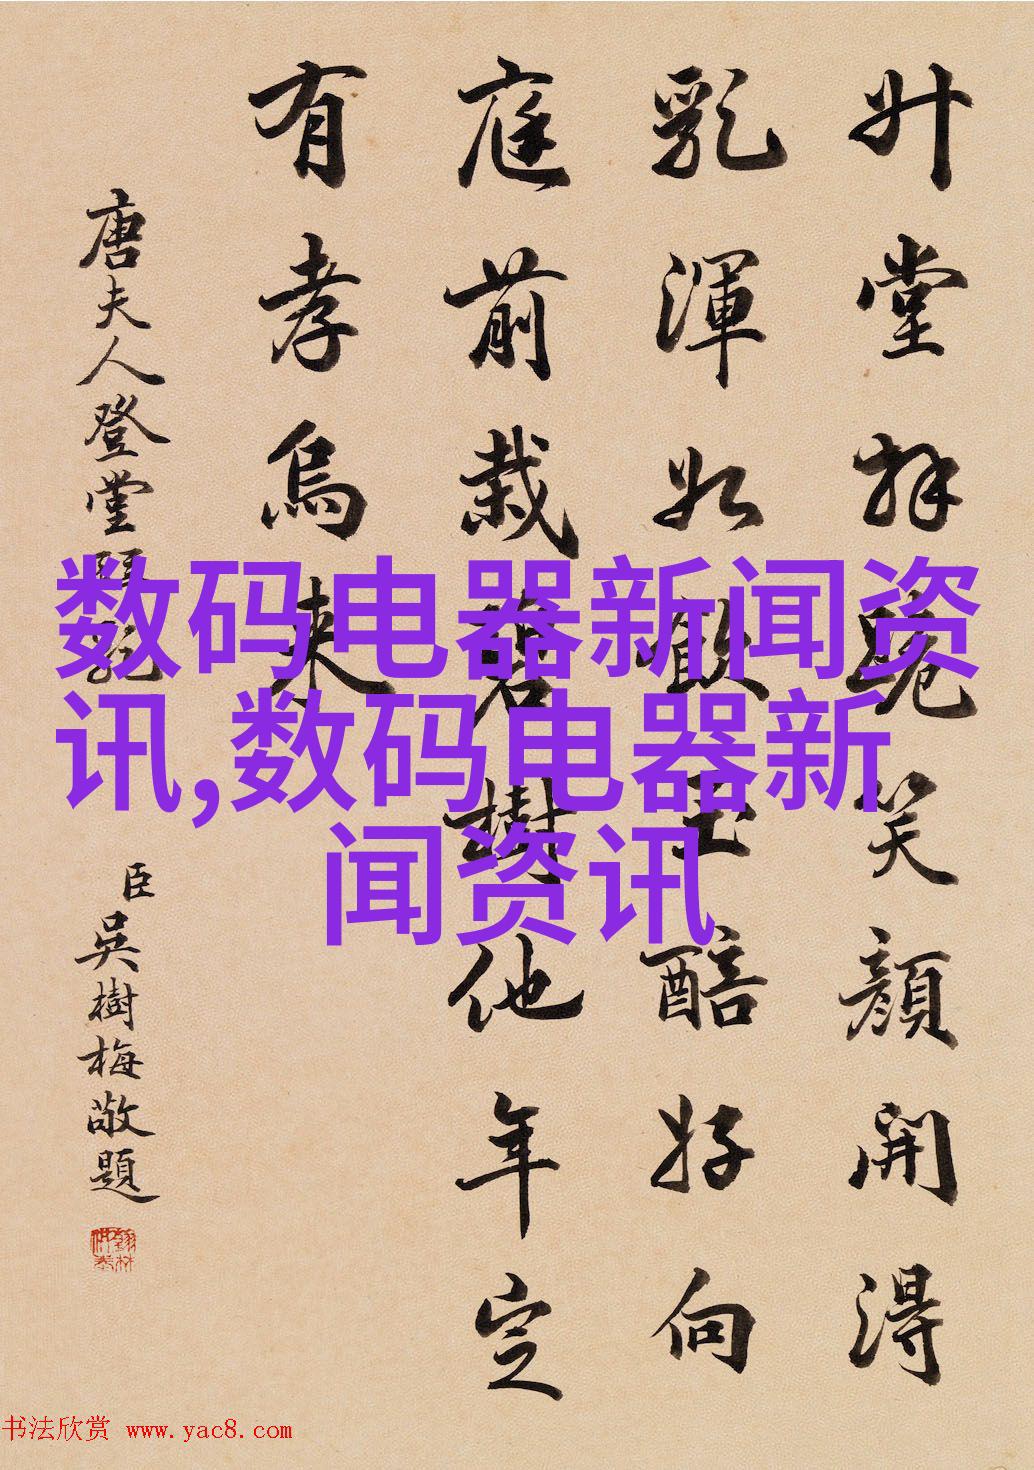 升堂拜笑顏開得
乳渾如飲玉醅好向
庭前栽樹他年定
有孝烏來
唐夫人登堂乳
臣吳樹梅敬題
翰林供奉
数码电器新闻资
讯,数码电器新
闻资讯
书法欣赏 www.yac8.com